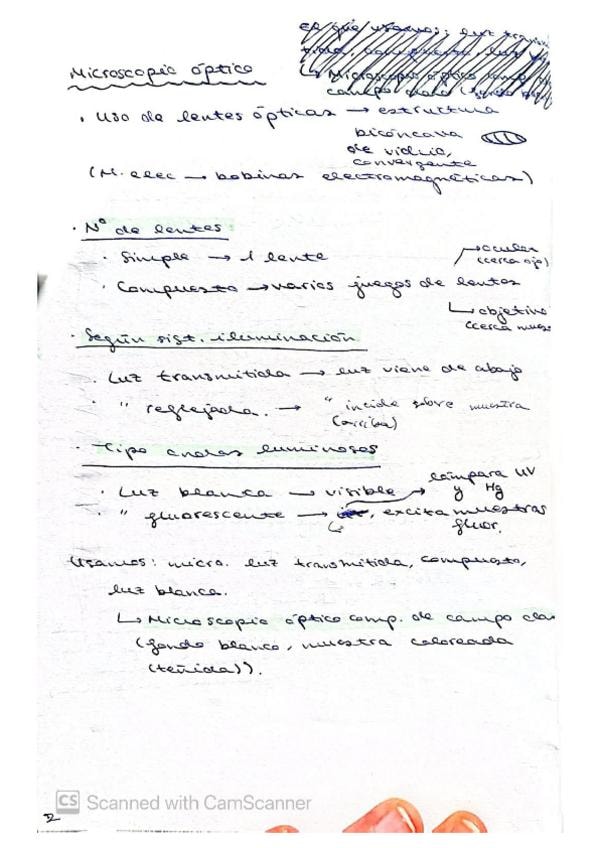 Microscopio óptico
el que usamos: luz transmi
tida, compuesto, luz
↳ Microscopio óptico comp.
campo claro (fondo
· Uso de lentes ópticas → estructura
bicóncava
de vidrio,
convergente
(M. elec → bobinas electromagnéticas)
· Nº de lentes
· Simple → 1 lente
· Compuesto → varios juegos de lentes
→ ocular
(cerca ojo)
→ objetivo
(cerca mues
· Según sist. iluminación
· Luz transmitida → luz viene de abajo
· " reflejada. → " incide sobre muestra
(arriba)
· Tipo ondas luminosas
· Luz blanca → visible
· " fluorescente → , excita muestras
fluor.
→ lámpara UV
y Hg
Usamos: micro. luz transmitida, compuesto,
luz blanca.
↳ Microscopio óptico comp. de campo cla
(fondo blanco, muestra coloreada
(teñida)).
CS Scanned with CamScanner